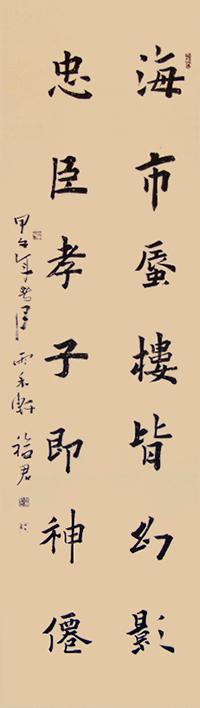 海市蜃樓皆幻影
忠臣孝子即神僊
甲午年
雨禾軒
福君